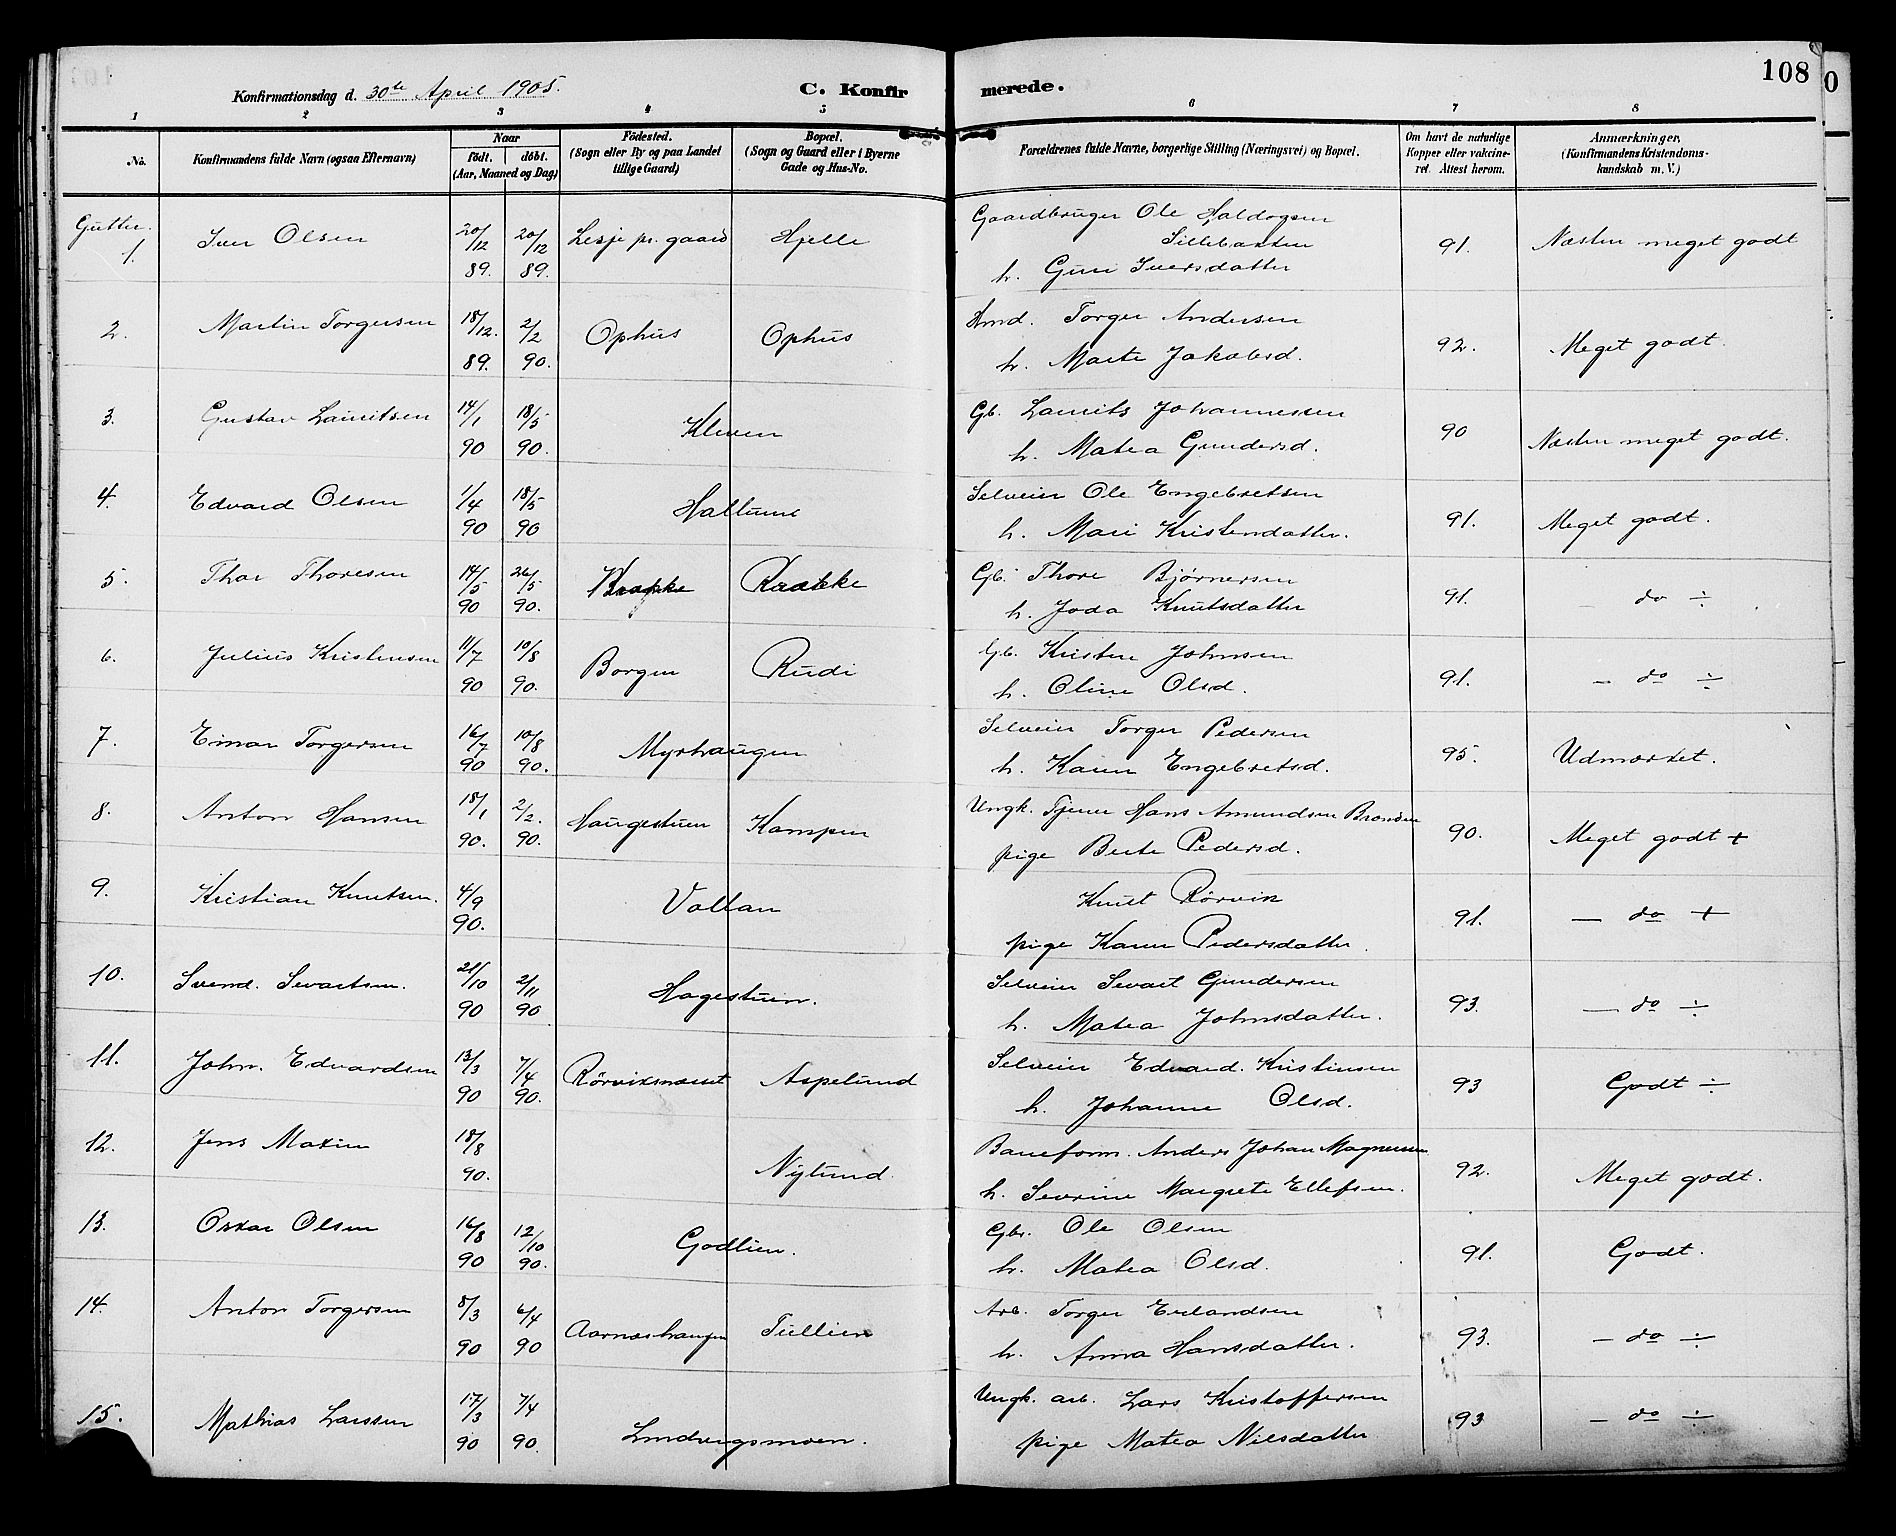 108
Konfirmationsdag d. 30te April 1905.
C. Konfirmerede.
1 2 3 4 5 6 7 8
No.
Konfirmandens fulde Navn (ogsaa Efternavn)
Naar
født. døbt.
(Aar, Maaned og Dag)
Fødested.
(Sogn eller By og paa Landet
tillige Gaard)
Bopæl.
(Sogn og Gaard eller i Byerne
Gade og Hus-No.
Forældrenes fulde Navne, borgerlige Stilling (Næringsvei) og Bopæl.
Om havt de naturlige
Kopper eller vakcine-
ret. Attest herom.
Anmærkninger,
(Konfirmandens Kristendoms-
kundskab m. V.)
Gutter.
1. Iver Olsen 20/12 89. 20/12 89. Lesje pr. gaard Hjelle Gaardbruger Ole Haldogsen
Sillebakken
h. Guri Iversdatter 91. Næsten meget godt
2. Martin Torgersen 18/12. 89. 2/2 90. Ophus Ophus Hmd. Torger Andersen
h. Marte Jakobsd. 92. Meget godt.
3. Gustav Lauritsen 14/1 90 18/5 90. Kleven Gb. Laurits Johannessen
h. Matea Gundersd. 90 Næsten meget godt.
4. Edvard Olsen 1/4 90 18/5 90 Haltune Selveier Ole Engebretsen
h. Mari Kristendatter. 91. Meget godt.
5. Thor Thoresen 14/5 90 26/5 90. Kroken Raakke Gb. Thore Bjørnersen
h. Joda Knutsdatter 91. do ÷
6. Julius Kristensen 11/7 90 10/8 90. Borgen Rudi Gb. Kristen Johnsen
h. Oline Olsd. 91. – do ÷
7. Einar Torgersen 16/7 90 10/8 90. Myrhaugen Selveier Torger Pedersen
h. Karen Engebretsd. 95. Udmærket.
8. Anton Hansen 18/1 90. 2/2. 90. Haugestuen Kampen Ungk. Tjener Hans Amundsen Brænden
pige Berte Pedersd. 90. Meget godt +
9. Kristian Knutsen. 4/9 90. Vollan Knut Rörvik
pige Karen Pedersdatter. 91. – do +
10. Svend. Sevartsen. 21/10 90 2/11 90 Hagestuen. Selveier Sevart Gundersen
h. Matea Johnsdatter. 93. – do ÷
11. John. Edvardsen 13/3 90 7/4 90. Rörviksnæsset Aspelund Selveier Edvard. Kristinsen
h. Johanne Olsd. 93 Godt ÷
12. Jens Maxim 18/8 90. Nylund. Baneform. Anders Johan Magnussen
h. Severine Margrete Ellefsen. 92. Meget godt.
13. Oskar Olsen 16/8 90 12/10 90. Godlien. Gbr. Ole Olsen
h. Matea Olsd. 91. Godt.
14. Anton Torgersen 8/3 90 6/4 90 Aarnæshaugen Tullien Arb. Torger Erlandsen
h. Anna Hansdatter. 93. – do ÷
15. Mathias Larssen 17/3 90 7/4 90. Lmdvegsmoen. Ungk. arb. Lars Kristoffersen
pige Matea Nilsdatter 93 – do ÷